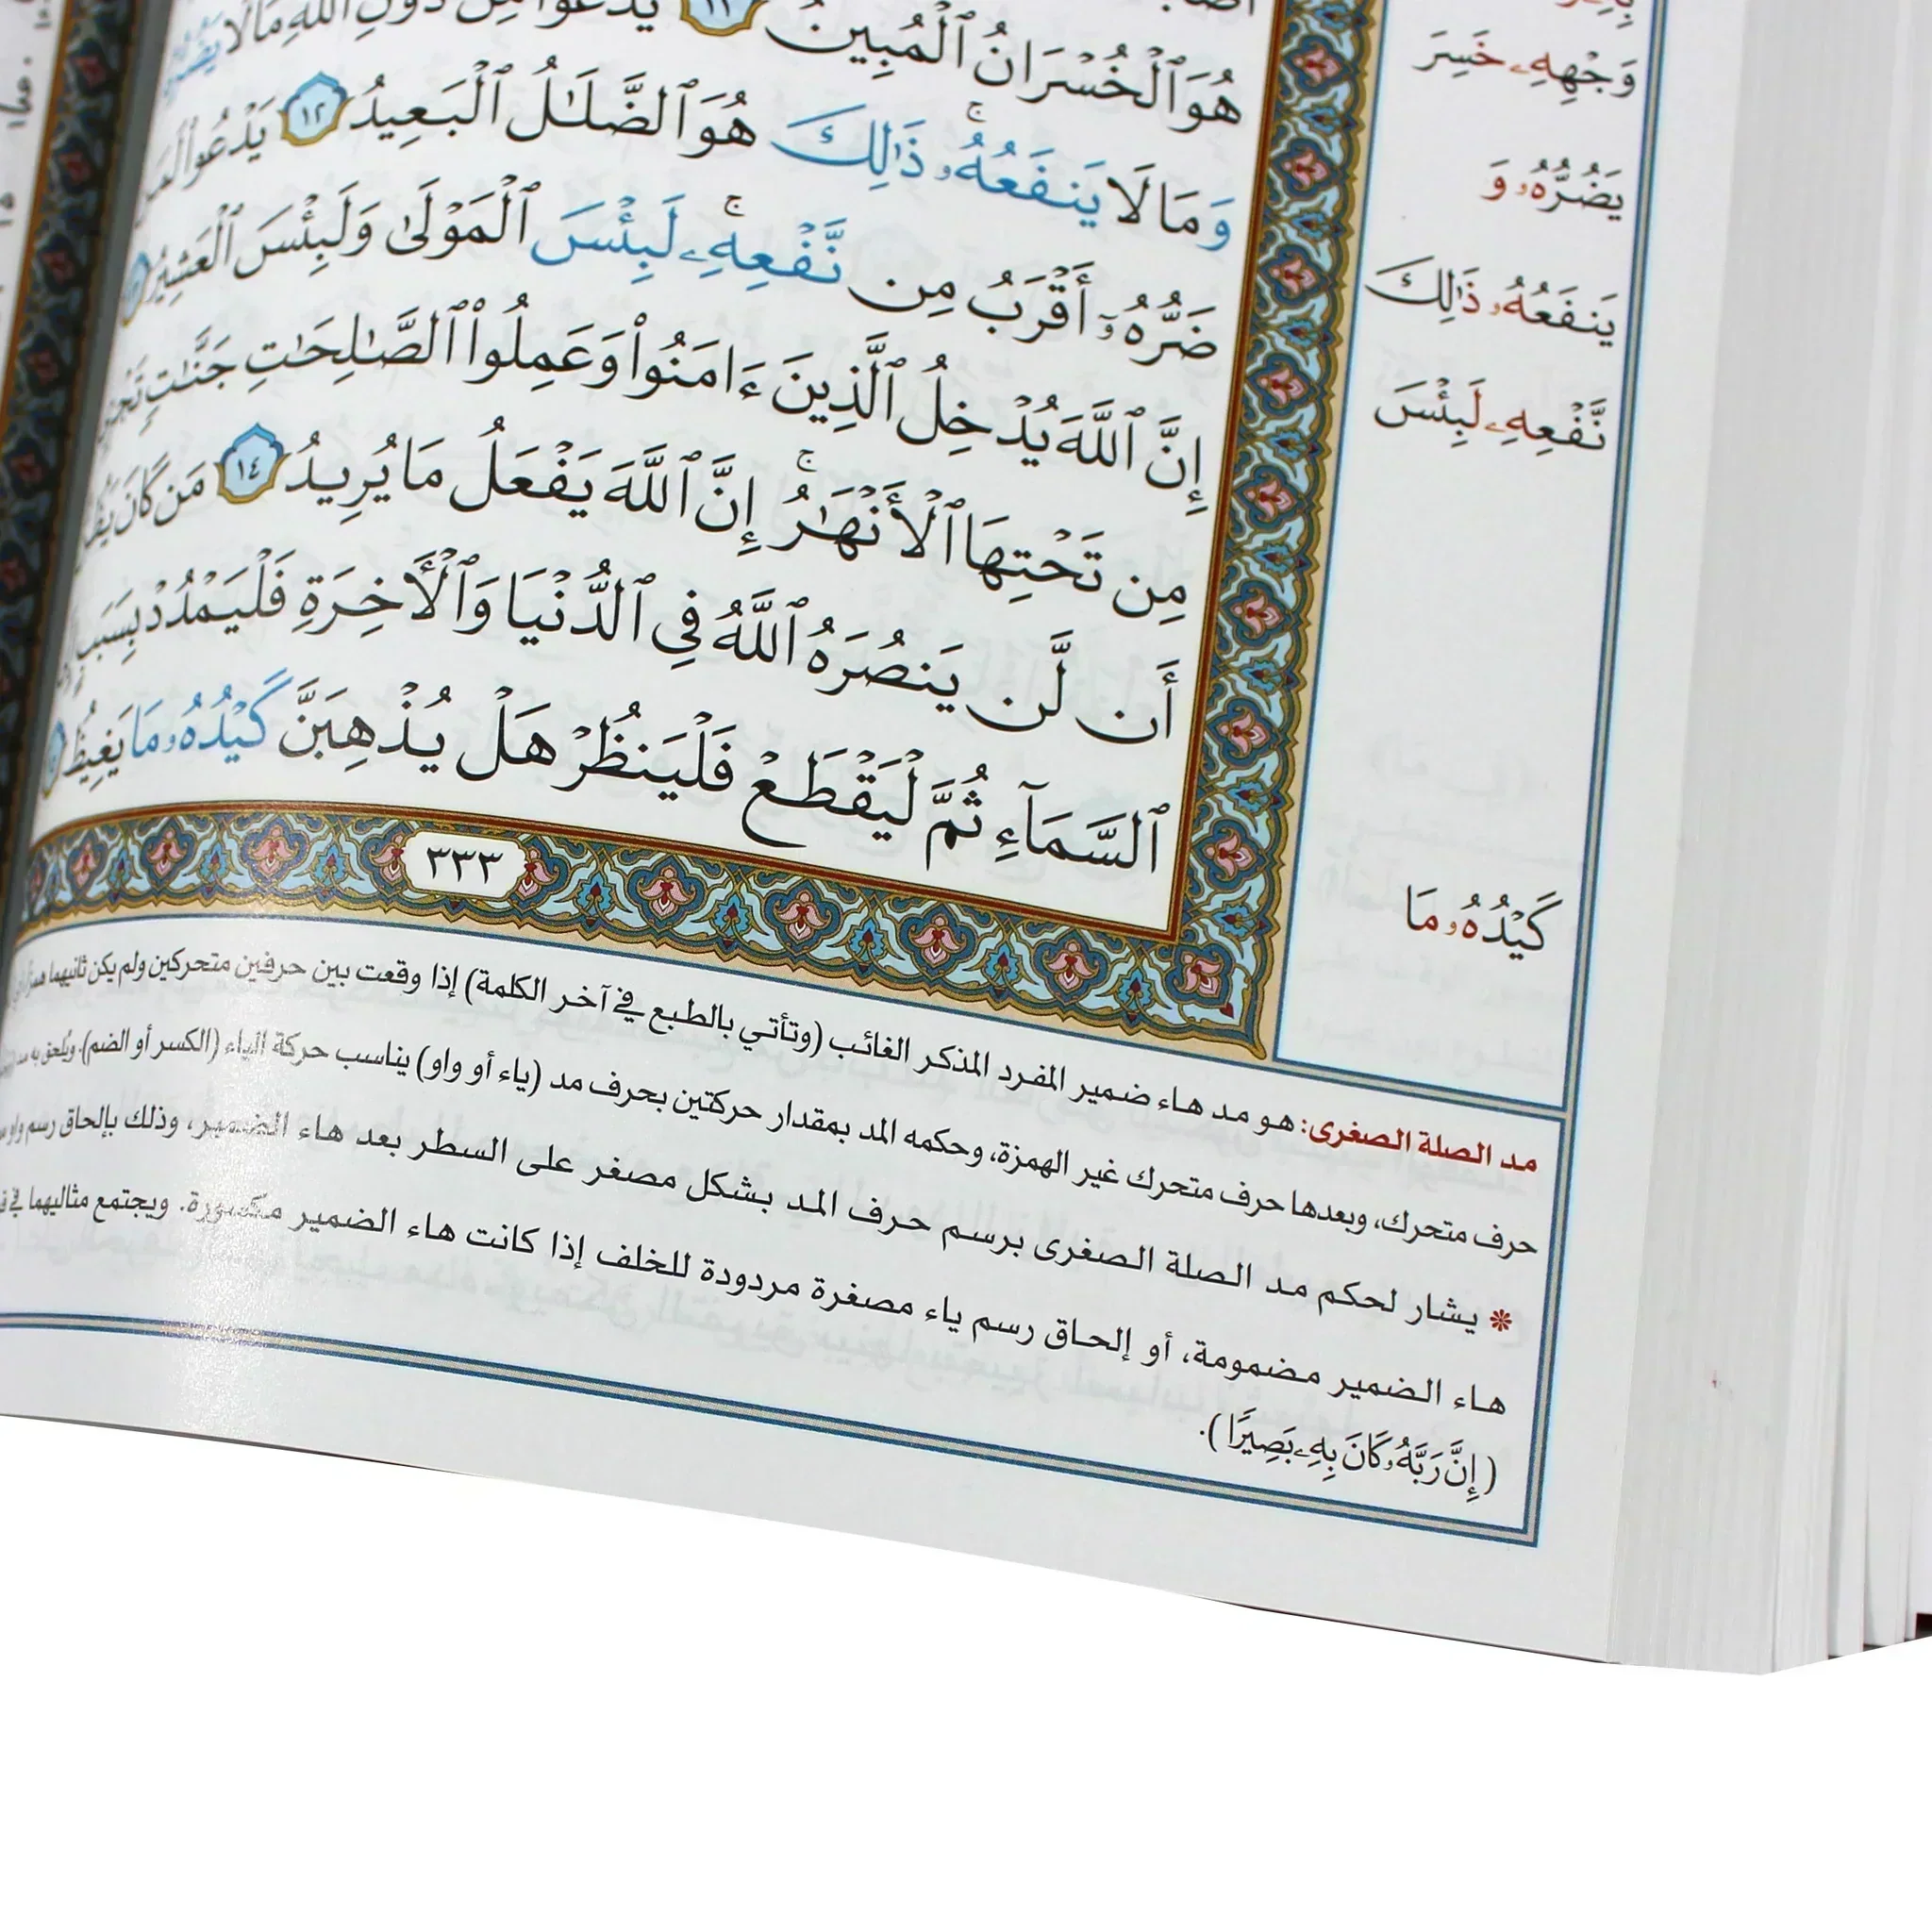 هُوَ ٱلْخُسْرَانُ ٱلْمُبِينُ ١١ يَدْعُوا۟ مِن دُونِ ٱللَّهِ مَا لَا
وَمَا لَا يَنفَعُهُۥ ۚ ذَٰلِكَ هُوَ ٱلضَّلَـٰلُ ٱلْبَعِيدُ ١٢ يَدْعُوا۟
ضَرُّهُۥٓ أَقْرَبُ مِن نَّفْعِهِۦ ۚ لَبِئْسَ ٱلْمَوْلَىٰ وَلَبِئْسَ ٱلْعَشِيرُ
إِنَّ ٱللَّهَ يُدْخِلُ ٱلَّذِينَ ءَامَنُوا۟ وَعَمِلُوا۟ ٱلصَّـٰلِحَـٰتِ جَنَّـٰتٍ
مِن تَحْتِهَا ٱلْأَنْهَـٰرُ ۚ إِنَّ ٱللَّهَ يَفْعَلُ مَا يُرِيدُ ١٤ مَن كَانَ
أَن لَّن يَنصُرَهُ ٱللَّهُ فِى ٱلدُّنْيَا وَٱلْـَٔاخِرَةِ فَلْيَمْدُدْ بِسَبَبٍ
ٱلسَّمَآءِ ثُمَّ لْيَقْطَعْ فَلْيَنظُرْ هَلْ يُذْهِبَنَّ كَيْدُهُۥ مَا يَغِيظُ
٣٣٣
وَجْهِهِۦ خَسِرَ
يَضُرُّهُۥ وَ
يَنفَعُهُۥ ذَٰلِكَ
نَّفْعِهِۦ لَبِئْسَ
كَيْدُهُۥ مَا
مد الصلة الصغرى: هو مد هاء ضمير المفرد المذكر الغائب (وتأتي بالطبع في آخر الكلمة) إذا وقعت بين حرفين متحركين ولم يكن ثانيهما
حرف متحرك، وبعدها حرف متحرك غير الهمزة، وحكمه المد بمقدار حركتين بحرف مد (ياء أو واو) يناسب حركة الهاء (الكسر أو الضم). ويُلحق به
* يشار لحكم مد الصلة الصغرى برسم حرف المد بشكل مصغر على السطر بعد هاء الضمير، وذلك بإلحاق رسم واو
هاء الضمير مضمومة، أو إلحاق رسم ياء مصغرة مردودة للخلف إذا كانت هاء الضمير مكسورة. ويجتمع مثاليهما في
(إِنَّ رَبَّهُۥ كَانَ بِهِۦ بَصِيرًا).